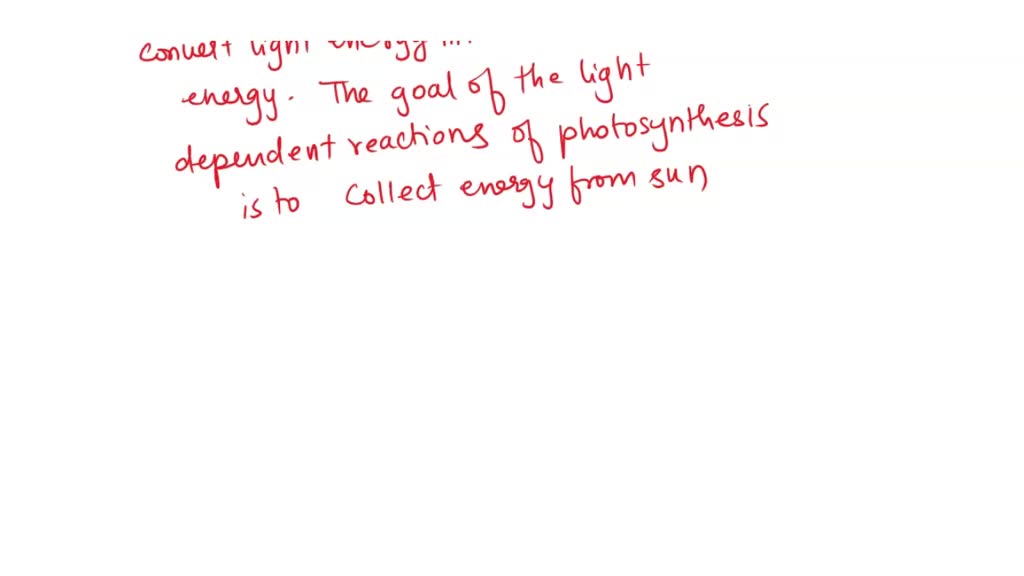 convert light energy in
energy. The goal of the light
dependent reactions of photosynthesis
is to collect energy from sun